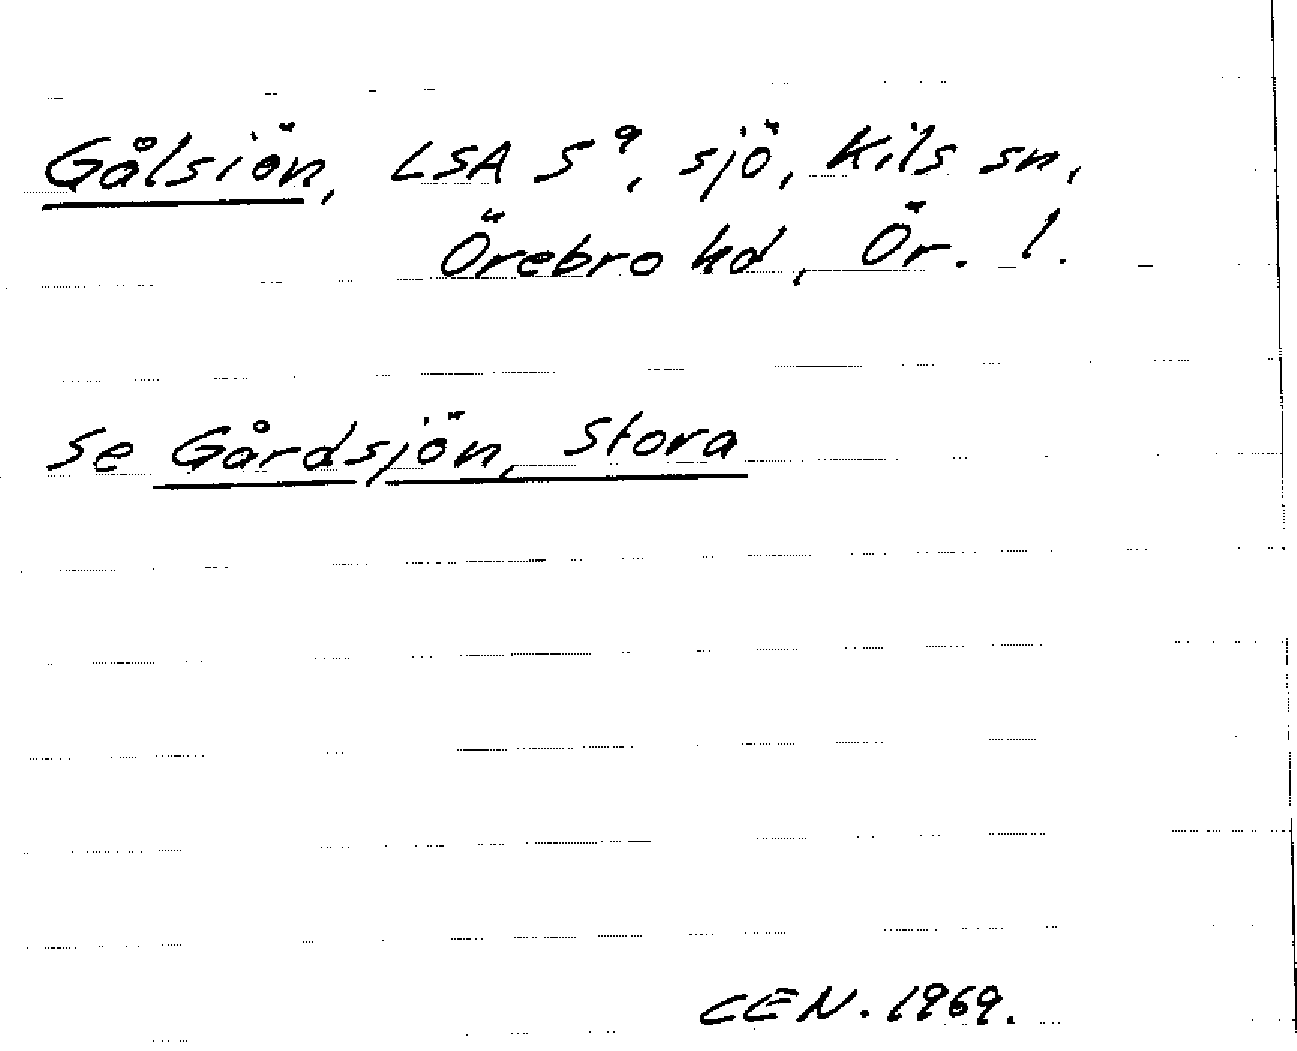 Gålsiön, LSA S⁹, sjö, Kils sn,
Örebro hd, Ör. l.
Se Gårdsjön, Stora
CEN. 1969.